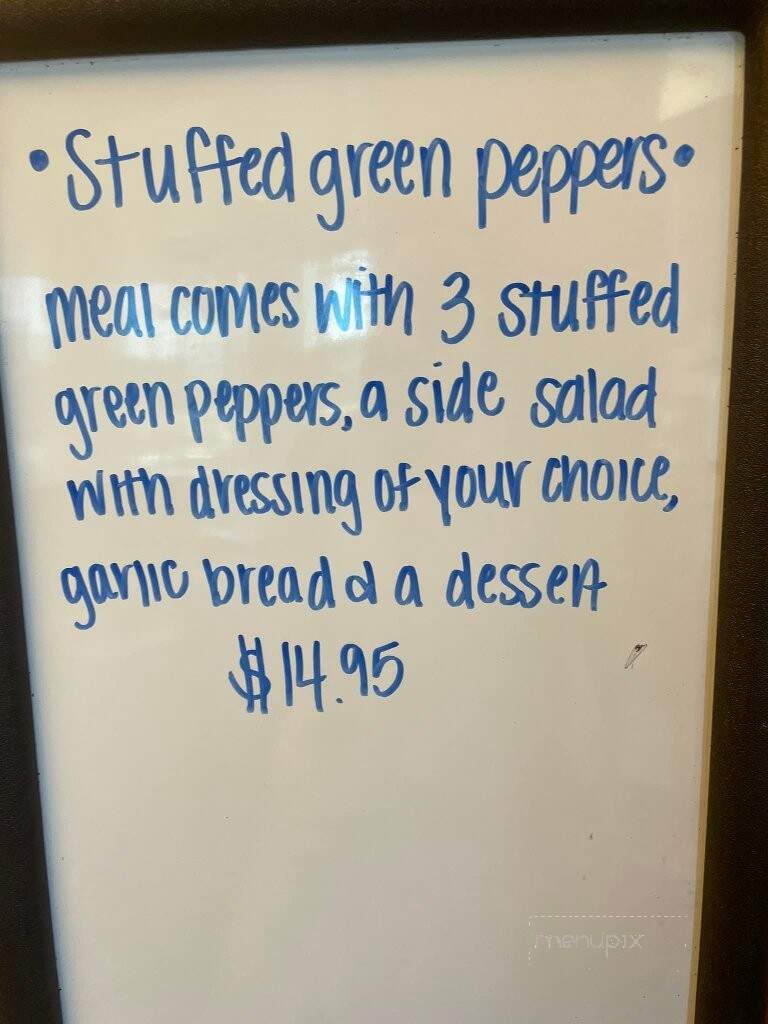 • Stuffed green peppers •
meal comes with 3 stuffed
green peppers, a side salad
with dressing of your choice,
garlic bread & a dessert
$14.95
menupix